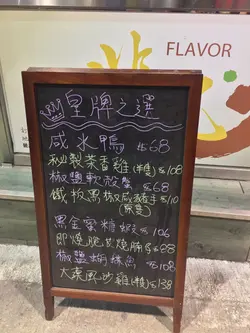 FLAVOR
皇牌之選
咸水鴨 $68
秘製茶香雞(半隻) $108
椒鹽軟殼蟹 $68
鐵板黑椒咸豬手 $110
黑金蜜糖蝦 $106
即燒脆皮燒腩 $68
椒鹽 $108
大漠風沙雞 $138